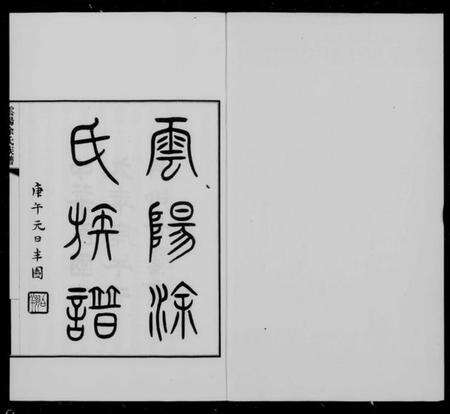 雲陽涂
氏族譜
庚午元日半園